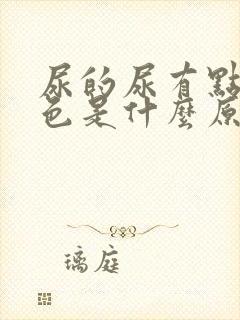 尿的尿有點
色是什麼原
璃庭